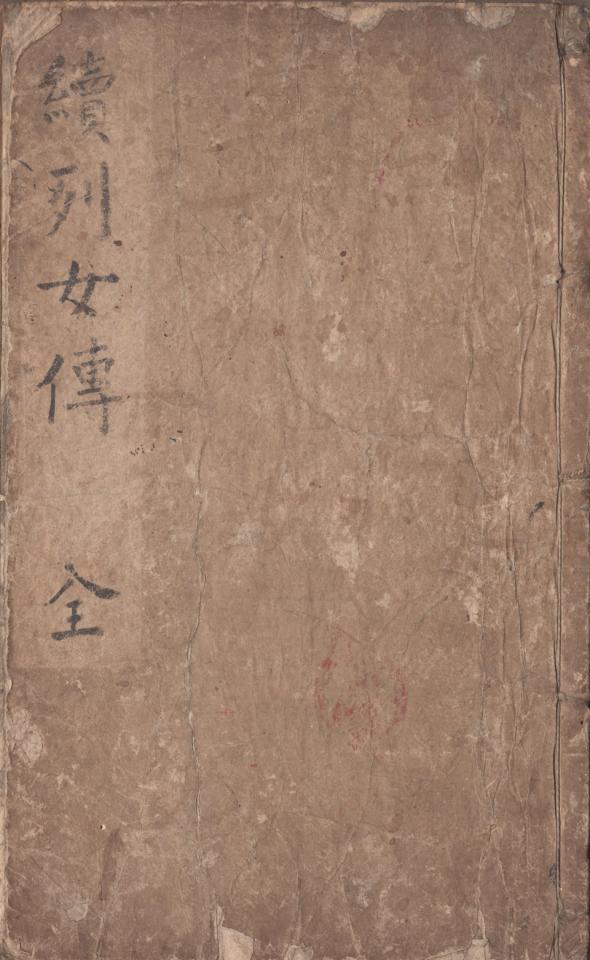 續列女傳 全